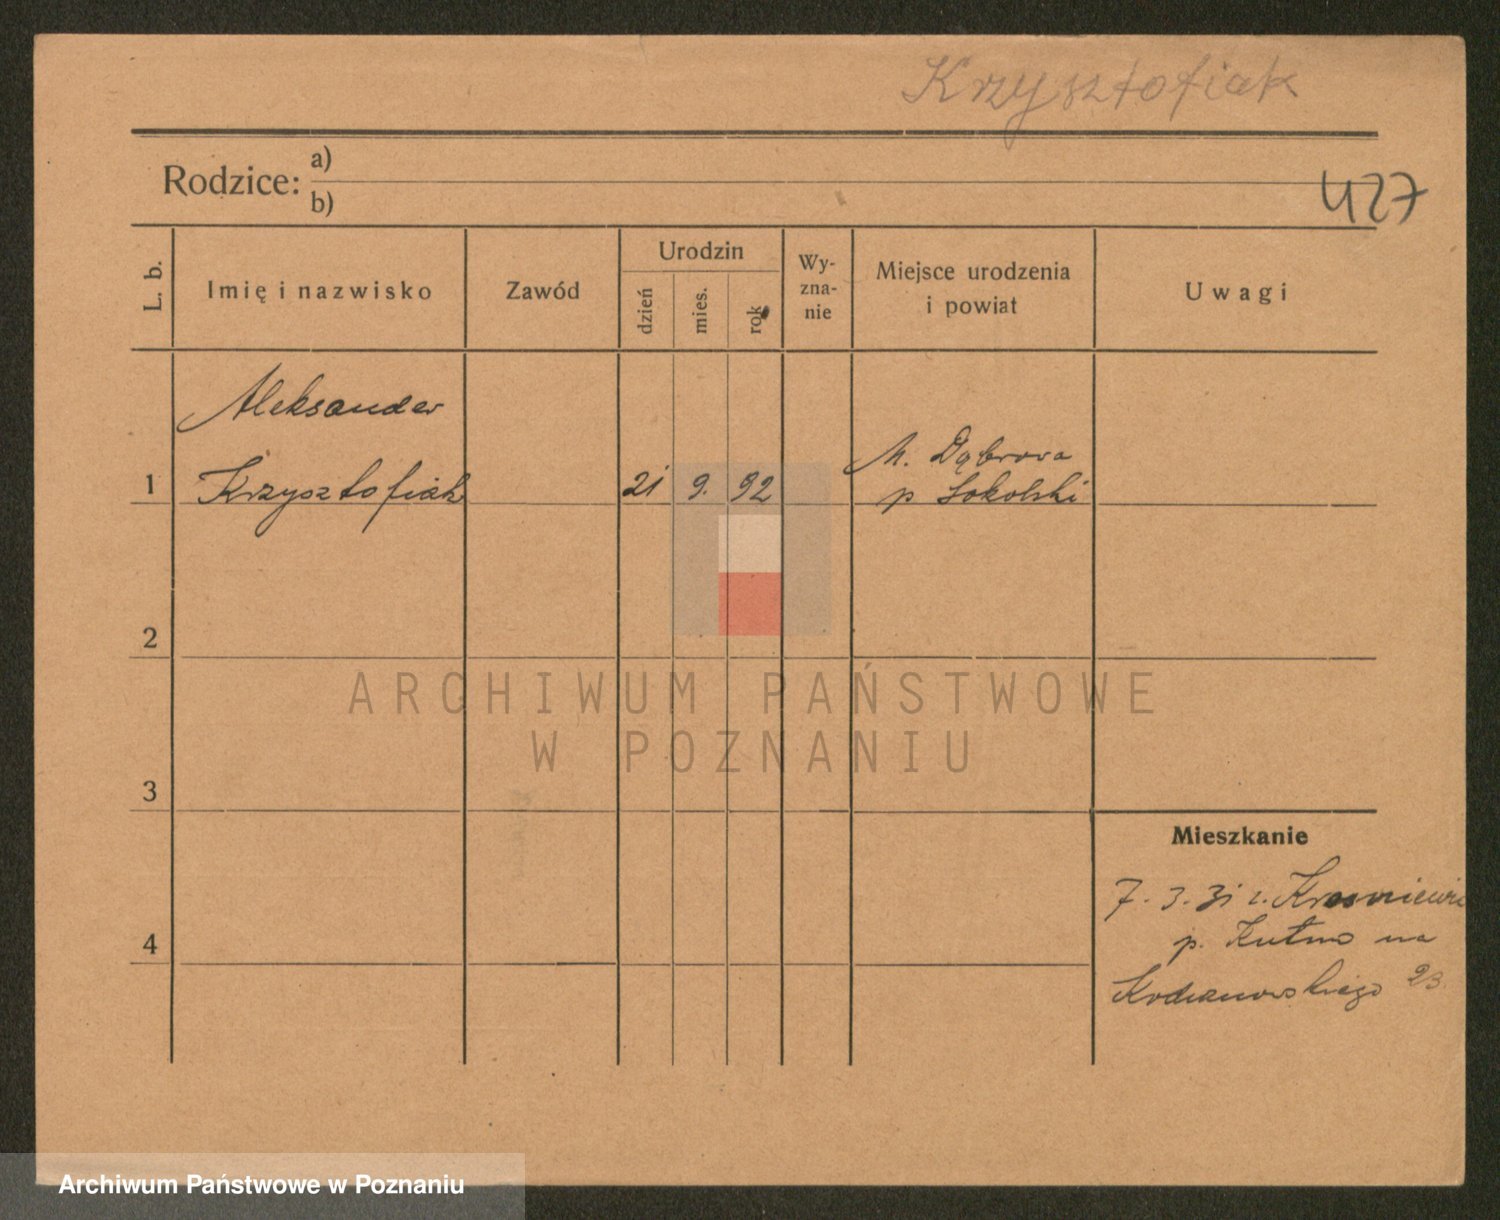 Krzysztofiak
Rodzice: a)
b)
427
L. b.
Imię i nazwisko
Zawód
Urodzin
dzień
mies.
rok
Wy-
zna-
nie
Miejsce urodzenia
i powiat
Uwagi
Aleksander
1 Krzysztofiak 21 9. 92
M. Dąbrowa
p Sokolski
2
3
4
Mieszkanie
7. 3. 31 z. Krosniewic
p. Kutno na
23.
ARCHIWUM PAŃSTWOWE
W POZNANIU
Archiwum Państwowe w Poznaniu